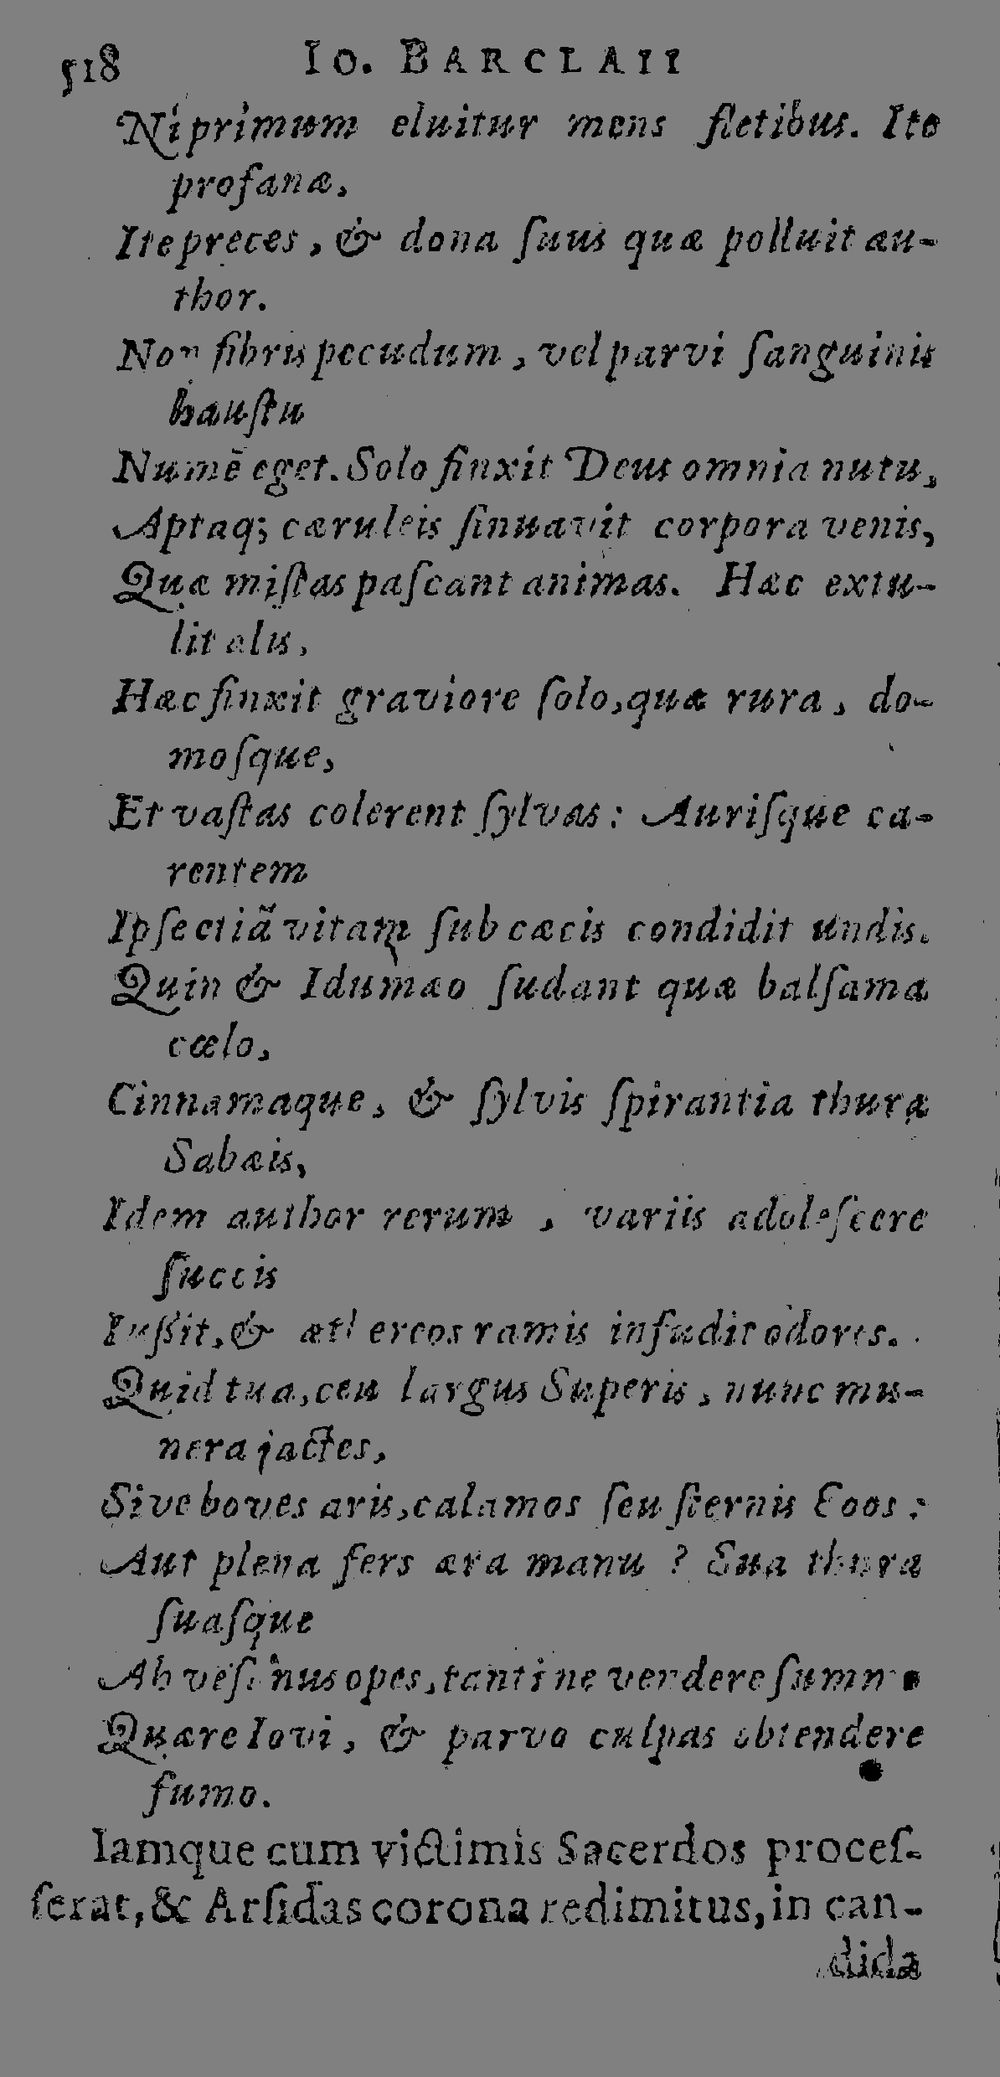 518 IO. BARCLAII
Ni primum eluitur mens fletibus. Ite
profanæ,
Ite preces, & dona ſuus quæ polluit au-
thor.
Non fibris pecudum, vel parvi ſanguinis
hauſtu
Numē eget. Solo finxit Deus omnia nutu,
Aptaq; cæruleis ſinuavit corpora venis,
Quæ miſtas paſcant animas. Hæc extu-
lit alis,
Hæc finxit graviore ſolo, quæ rura, do-
moſque,
Et vaſtas colerent ſylvas: Auriſque ca-
rentem
Ipſe etiā vitam ſub cæcis condidit undis.
Quin & Idumæo ſudant quæ balſama
cœlo,
Cinnamaque, & ſylvis ſpirantia thura
Sabæis,
Idem author rerum, variis adoleſcere
ſuccis
Iuſſit, & æthereos ramis infudit odores.
Quid tua, ceu largus Superis, nunc mu-
nera jactes,
Sive boves aris, calamos ſeu ſternis Eoos:
Aut plena fers æra manu? Sua thura
ſuaſque
Ah veſanus opes, tanti ne vendere ſummo
Quære Iovi, & parvo culpas obtendere
fumo.
Iamque cum victimis Sacerdos proceſ-
ſerat, & Arſidas corona redimitus, in can-
dida